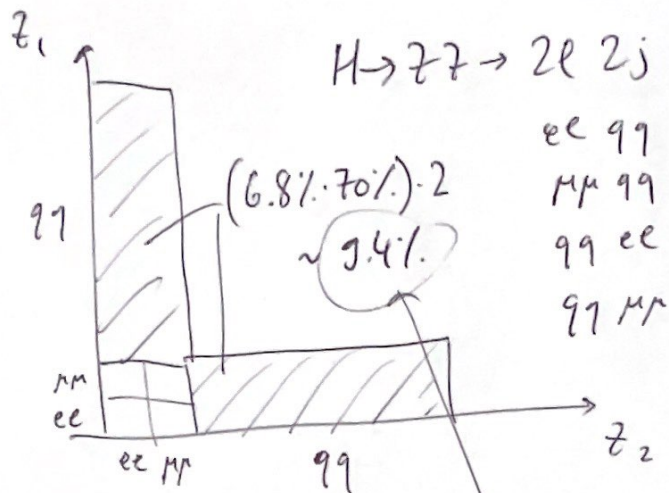 Z₁
H→ZZ→ 2ℓ 2j
ee qq
μμ qq
qq ee
qq μμ
(6.8%·70%)·2
~ 9.4%
qq
μμ
ee
ee μμ
qq
Z₂